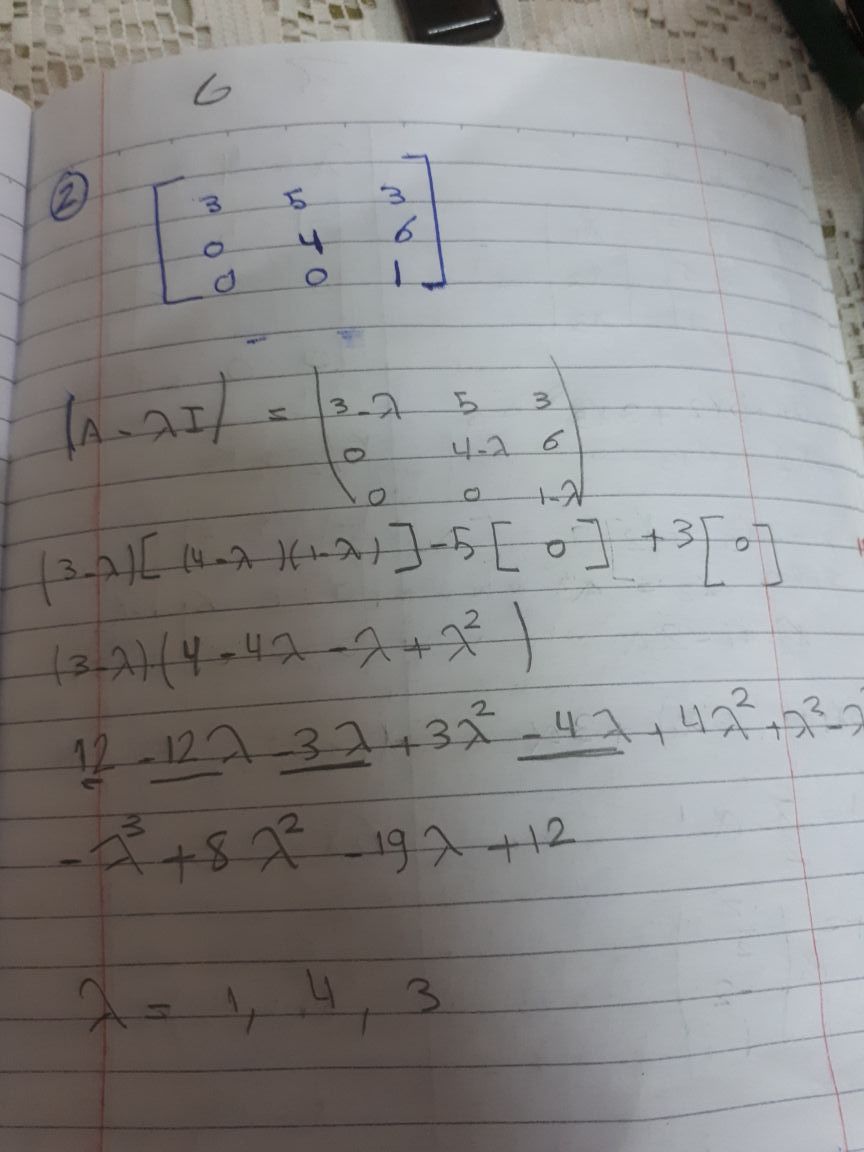 6
② [ 3 5 3
0 4 6
0 0 1 ]
|A - λI| = | 3-λ 5 3
0 4-λ 6
0 0 1-λ |
(3-λ)[ (4-λ)(1-λ) ] -5 [ 0 ] +3 [ 0 ]
(3-λ)(4 - 4λ - λ + λ² )
12 - 12λ - 3λ + 3λ² - 4λ + 4λ² + λ² - λ
-λ³ + 8λ² - 19λ + 12
λ = 1, 4, 3